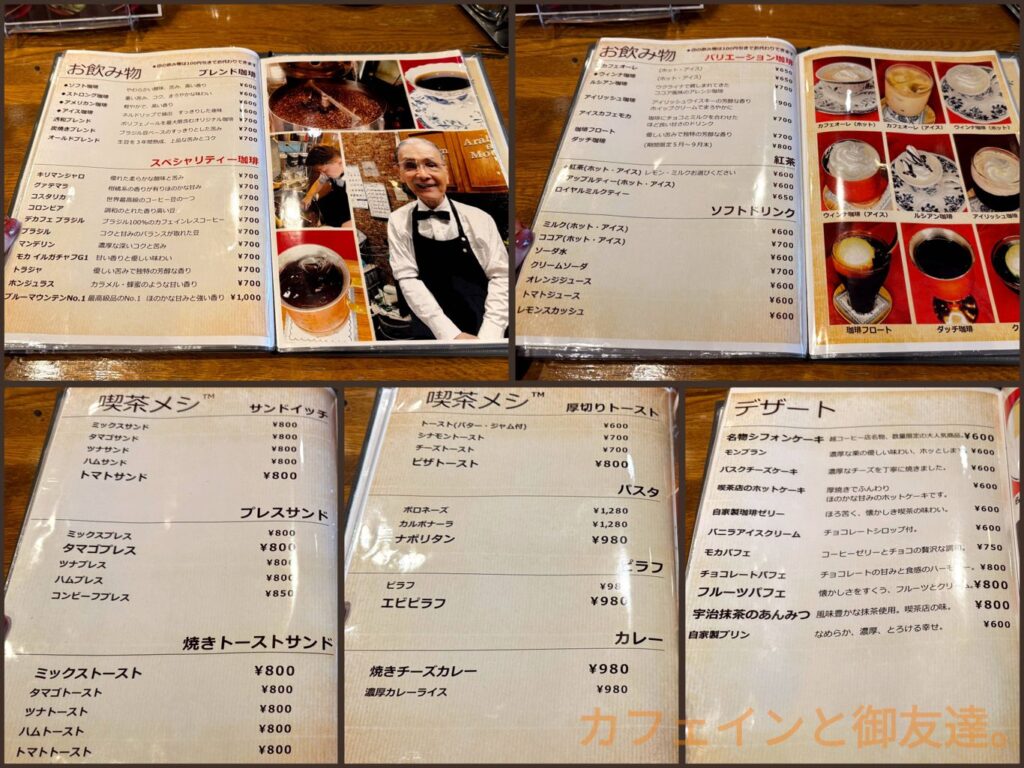 お飲み物
★印の飲み物は100円引きでお代わりできます
ブレンド珈琲
★ソフト珈琲 やわらかい酸味、苦み、高い香り ¥600
★ストロング珈琲 重い苦み、コク、まろやかな味わい ¥600
★アメリカン珈琲 軽やかで、高い香り ¥600
★アイス珈琲 ネルドリップで抽出 すっきりした後味 ¥600
ポリフェノールを最大限含むオリジナル珈琲 ¥700
炭焼きブレンド ブラジル豆ベースのすっきりとした苦み ¥700
オールドブレンド 生豆を3年間熟成、上品な苦みとコク ¥700
スペシャリティー珈琲
キリマンジャロ 優れた柔らかな酸味と苦み ¥700
グァテマラ 柑橘系の香りが有りほのかな甘み ¥700
コスタリカ 世界最高級のコーヒー豆の一つ ¥700
コロンビア 調和のとれた香り高い豆 ¥700
デカフェ ブラジル ブラジル100%のカフェインレスコーヒー ¥700
ブラジル コクと甘みのバランスが取れた豆 ¥700
マンデリン 濃厚な深いコクと苦み ¥700
モカ イルガチャフG1 甘い香りと優しい味わい ¥700
トラジャ 優しい苦みで独特の芳醇な香り ¥700
ホンジュラス カラメル・蜂蜜のような甘い香り ¥700
ブルーマウンテンNo.1 最高級品のNo.1 ほのかな甘みと強い香り ¥1,000
お飲み物
★印の飲み物は100円引きでお代わりできます
バリエーション珈琲
カフェオーレ (ホット・アイス) ¥650
★ウィンナ珈琲 (ホット・アイス) ¥650
ルシアン珈琲 ウクライナで親しまれてきた ¥700
ココア風味のアレンジ珈琲
アイリッシュ珈琲 アイリッシュウイスキーの芳醇な香り ¥900
ホイップクリームでまろやかに
アイスカフェモカ 珈琲にチョコとミルクを合わせた ¥700
ほど良い甘さのドリンク
珈琲フロート 優しい苦みで独特の芳醇な香り ¥700
ダッチ珈琲 (期間限定5月~9月末) ¥800
紅茶
★紅茶(ホット・アイス) レモン・ミルクお選びください ¥600
アップルティー(ホット・アイス) ¥600
ロイヤルミルクティー ¥650
ソフトドリンク
ミルク(ホット・アイス) ¥600
ココア(ホット・アイス) ¥700
ソーダ水 ¥600
クリームソーダ ¥700
オレンジジュース ¥600
トマトジュース ¥600
レモンスカッシュ ¥600
カフェオーレ(ホット)
カフェオーレ(アイス)
ウィンナ珈琲(ホット)
ウィンナ珈琲(アイス)
ルシアン珈琲
アイリッシュ珈琲
珈琲フロート
ダッチ珈琲
喫茶メシ™
サンドイッチ
ミックスサンド ¥800
タマゴサンド ¥800
ツナサンド ¥800
ハムサンド ¥800
トマトサンド ¥800
プレスサンド
ミックスプレス ¥800
タマゴプレス ¥800
ツナプレス ¥800
ハムプレス ¥800
コンビーフプレス ¥850
焼きトーストサンド
ミックストースト ¥800
タマゴトースト ¥800
ツナトースト ¥800
ハムトースト ¥800
トマトトースト ¥800
喫茶メシ™
厚切りトースト
トースト(バター・ジャム付) ¥600
シナモントースト ¥700
チーズトースト ¥700
ピザトースト ¥800
パスタ
ボロネーズ ¥1,280
カルボナーラ ¥1,280
ナポリタン ¥980
ピラフ
ピラフ ¥980
エビピラフ ¥980
カレー
焼きチーズカレー ¥980
濃厚カレーライス ¥980
デザート
名物シフォンケーキ 越コーヒー店名物、数量限定の大人気商品。 ¥600
モンブラン 濃厚な栗の優しい味わい、ホッとします。 ¥600
バスクチーズケーキ 濃厚なチーズを丁寧に焼きました。 ¥600
喫茶店のホットケーキ 厚焼きでふんわり ¥600
ほのかな甘みのホットケーキです。
自家製珈琲ゼリー ほろ苦く、懐かしき喫茶の味わい。 ¥600
バニラアイスクリーム チョコレートシロップ付。 ¥600
モカパフェ コーヒーゼリーとチョコの贅沢な調和。 ¥750
チョコレートパフェ チョコレートの甘みと食感のハーモニー。 ¥800
フルーツパフェ 懐かしさをすくう、フルーツとクリーム。 ¥800
宇治抹茶のあんみつ 風味豊かな抹茶使用。喫茶店の味。 ¥800
自家製プリン なめらか、濃厚、とろける幸せ。 ¥600
カフェインと御友達。